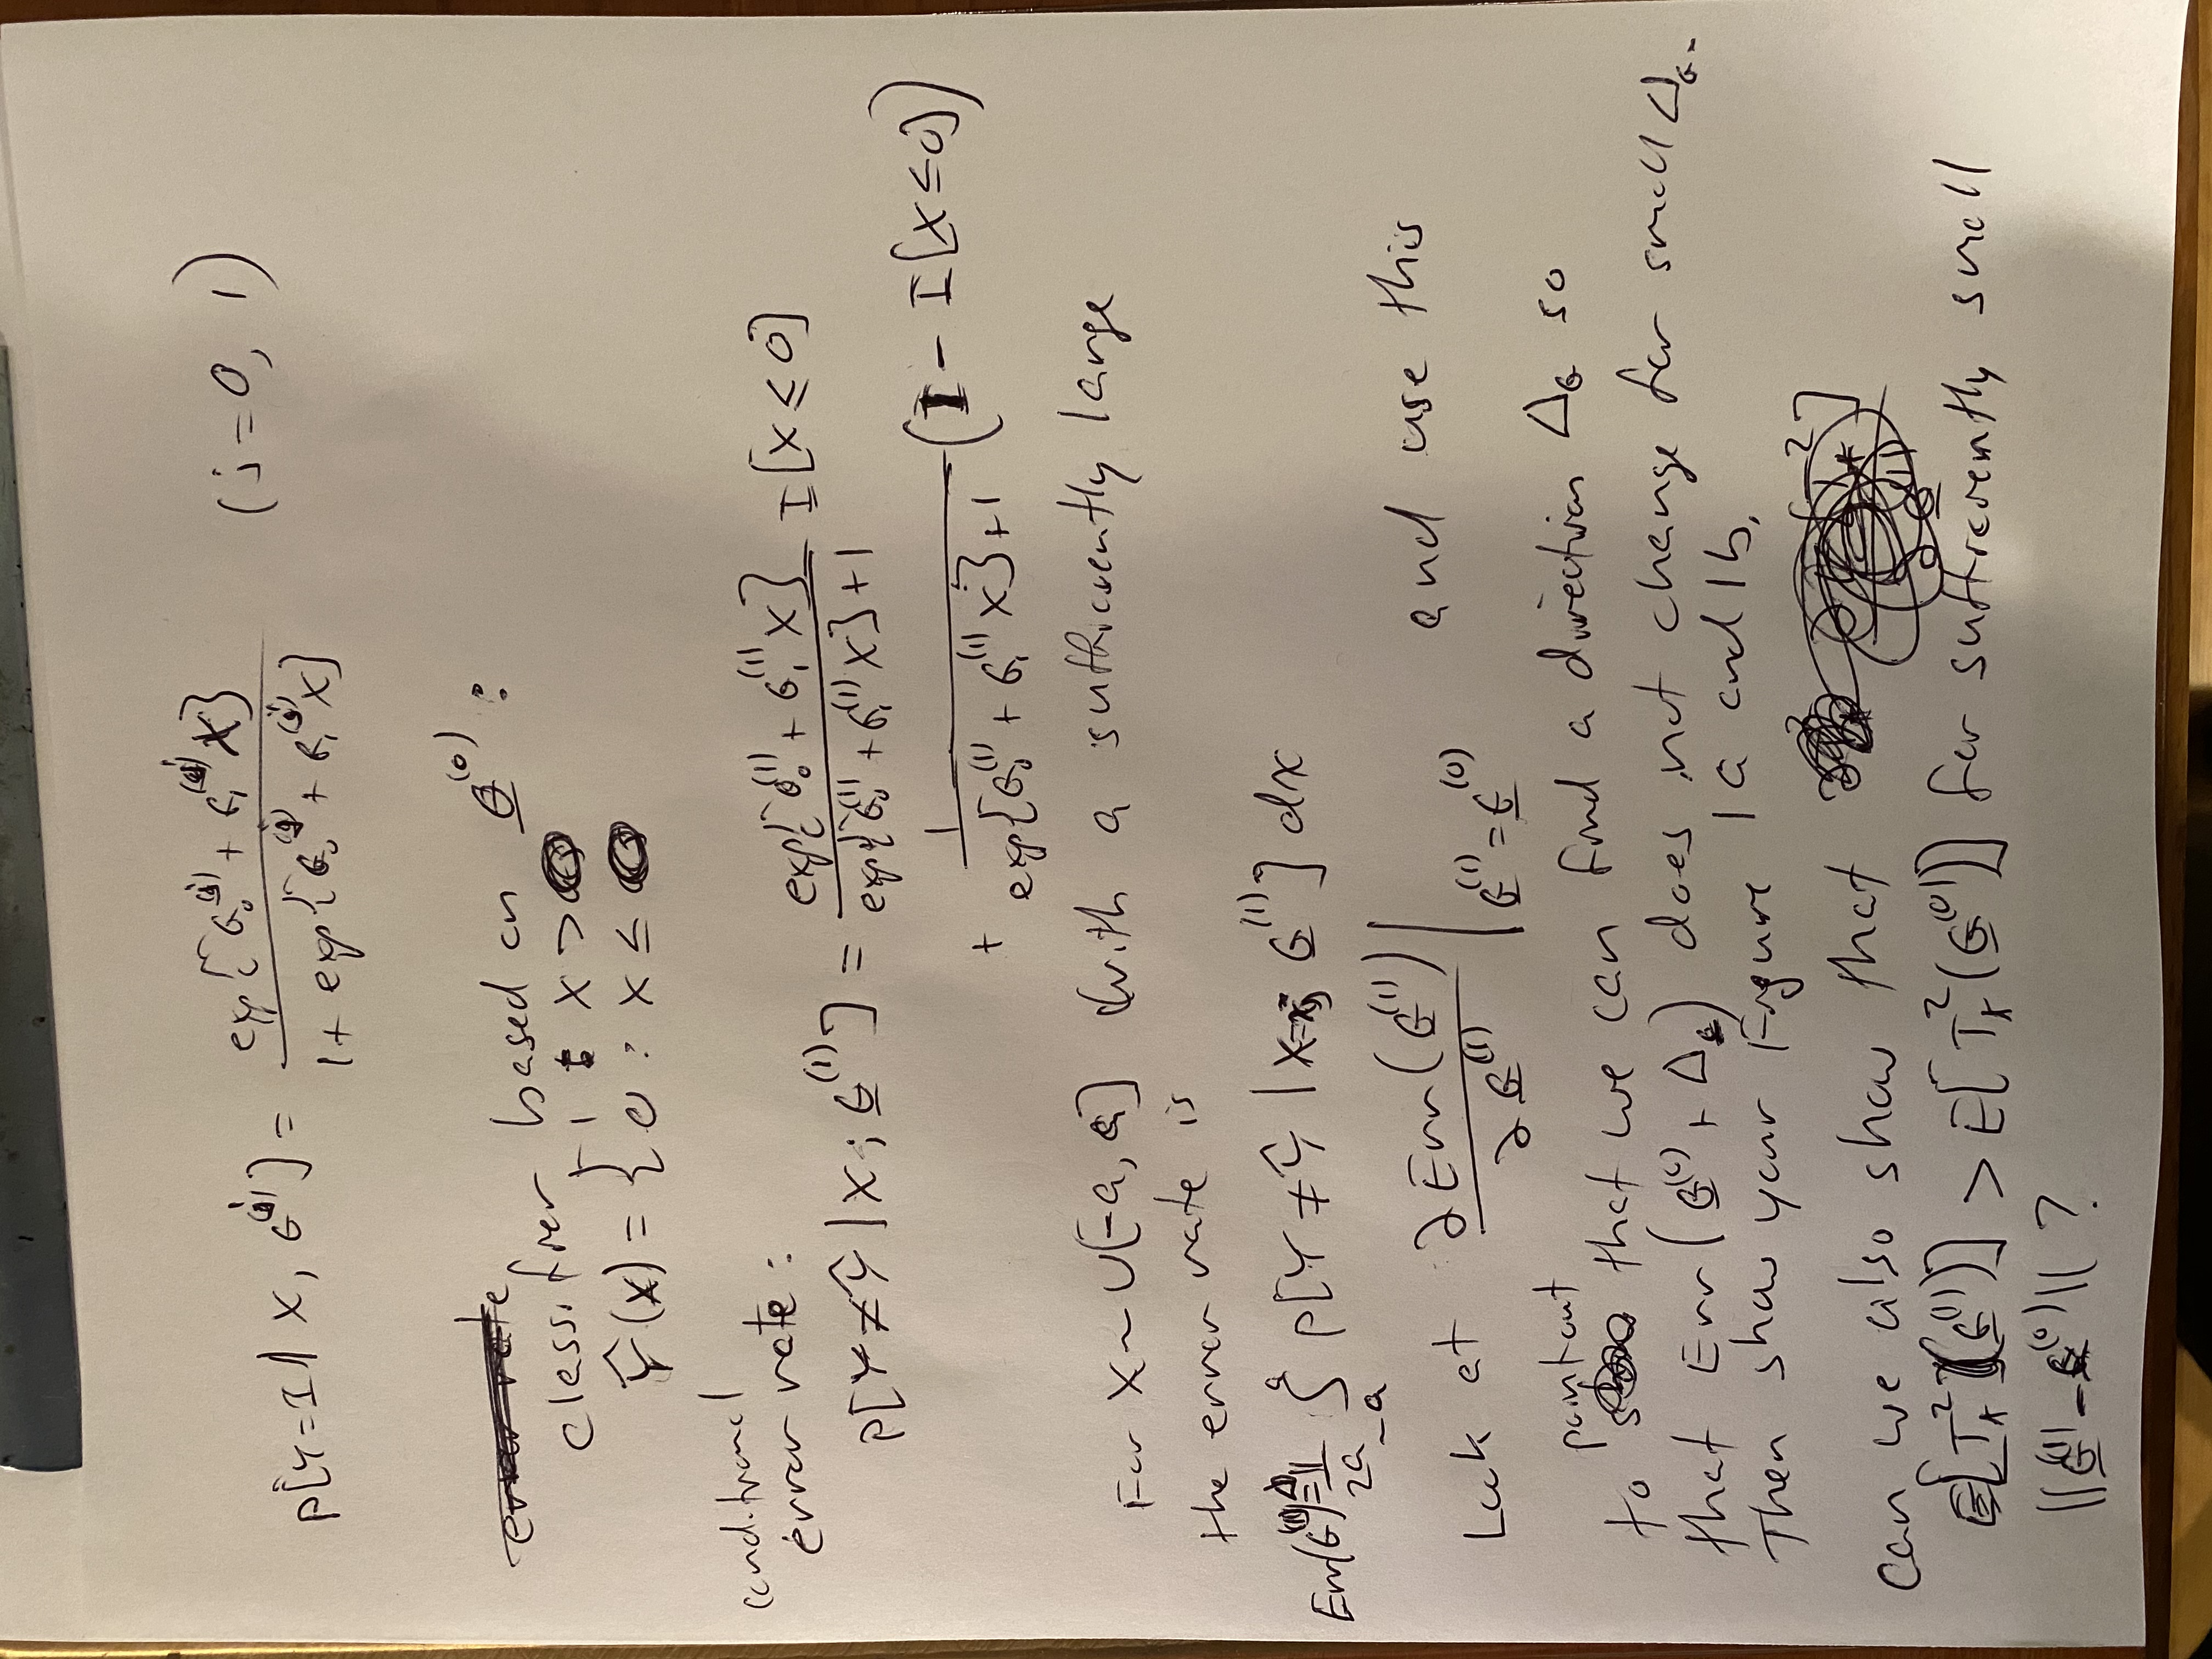 P[Y=1 | X, θ^(j)] = exp{θ₀^(j) + θ₁^(j) X} / 1 + exp{θ₀^(j) + θ₁^(j) X} (j = 0, 1)
error rate
classifier based on θ^(0) :
Ŷ(x) = { 1 : X > 0
0 : X ≤ 0
conditional
error rate :
P[Y ≠ Ŷ | X ; θ^(1)] = exp{θ₀^(1) + θ₁^(1) X} / exp{θ₀^(1) + θ₁^(1) X} + 1 I[X ≤ 0]
+ 1 / exp{θ₀^(1) + θ₁^(1) X} + 1 (1 - I[X ≤ 0])
For X ~ U[-a, a] with a sufficiently large
the error rate is
Err(θ^(1)) ≜ 1/2a ∫_-a^a P[Y ≠ Ŷ | X=x; θ^(1)] dx
Look at ∂Err(θ^(1)) / ∂θ^(1) | θ^(1) = θ^(0) and use this
point out
to that we can find a direction Δ_θ so
that Err(θ^(0) + Δ_θ) does not change for small Δ_θ.
Then show your Figure 1a and 1b.
Can we also show that
E[T_*²(θ^(1))] > E[T_*²(θ^(0))] for sufficiently small
||θ^(1) - θ^(0)|| ?